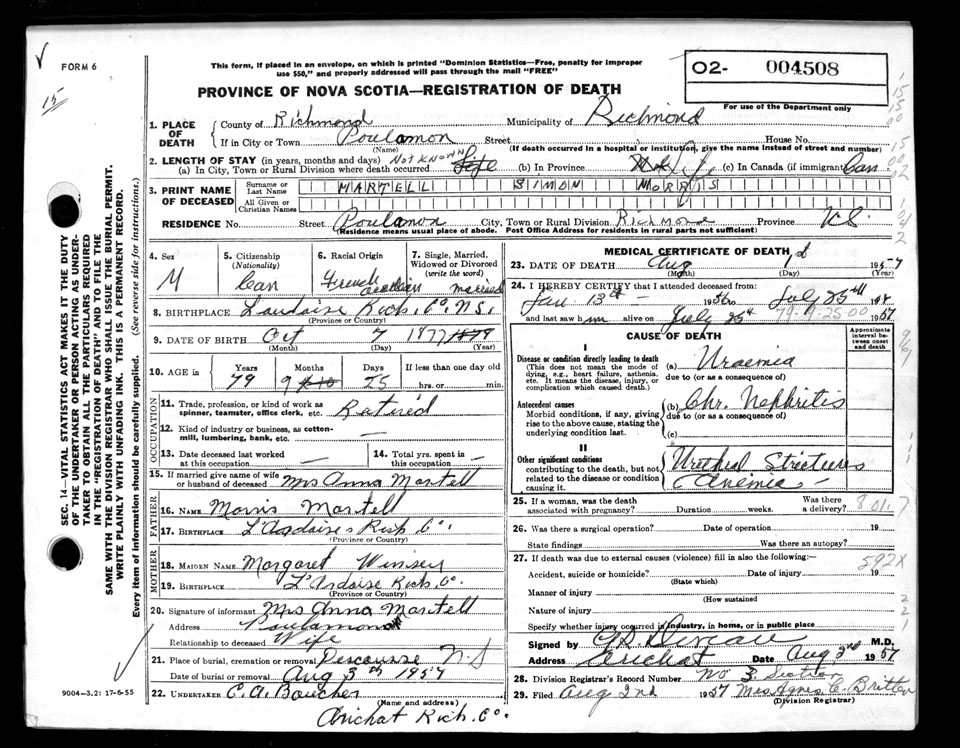 FORM 6
15
This form, if placed in an envelope, on which is printed "Dominion Statistics—Free, penalty for improper
use $50," and properly addressed will pass through the mail "FREE"
PROVINCE OF NOVA SCOTIA—REGISTRATION OF DEATH
O2- 004508
For use of the Department only
1. PLACE OF DEATH { County of Richmond Municipality of Richmond
If in City or Town Poulamon Street House No.
(Name) (If death occurred in a hospital or institution, give the name instead of street and number)
2. LENGTH OF STAY (in years, months and days) NOT KNOWN
(a) In City, Town or Rural Division where death occurred Life (b) In Province Life (c) In Canada (if immigrant) Can
3. PRINT NAME OF DECEASED { Surname or Last Name MARTELL SIMON MORRIS
All Given or Christian Names
RESIDENCE No. Street Poulamon City, Town or Rural Division Richmond Province N.S.
(Residence means usual place of abode. Post Office Address for residents in rural parts not sufficient)
4. Sex M
5. Citizenship (Nationality) Can
6. Racial Origin French Acadian
7. Single, Married, Widowed or Divorced (write the word) married
8. BIRTHPLACE Lardoise Rich. Co. N.S.
(Province or Country)
9. DATE OF BIRTH Oct 7 1877 1879
(Month) (Day) (Year)
10. AGE in Years 79 Months 9 Days 25 If less than one day old hrs. or min.
OCCUPATION
11. Trade, profession, or kind of work as spinner, teamster, office clerk, etc. Retired
12. Kind of industry or business, as cotton-mill, lumbering, bank, etc. —
13. Date deceased last worked at this occupation —
14. Total yrs. spent in this occupation —
15. If married give name of wife or husband of deceased Mrs Anna Martell
FATHER
16. NAME Morris Martell
17. BIRTHPLACE L'Ardoise Rich Co.
(Province or Country)
MOTHER
18. MAIDEN NAME Margaret
19. BIRTHPLACE L'Ardoise Rich. Co.
(Province or Country)
20. Signature of informant Mrs Anna Martell
Address Poulamon
Relationship to deceased Wife
21. Place of burial, cremation or removal Descousse N-S
Date of burial or removal Aug 3rd 1957
22. UNDERTAKER C. A. Boucher
(Name and address)
Arichat Rich. Co.
MEDICAL CERTIFICATE OF DEATH
23. DATE OF DEATH Aug 1st 1957
(Month) (Day) (Year)
24. I HEREBY CERTIFY that I attended deceased from:
Jan 13th 1956 to July 25th 19
and last saw him alive on July 25th 1957
79.9.25 00
CAUSE OF DEATH
Approximate interval between onset and death
I
Disease or condition directly leading to death
(This does not mean the mode of dying, e.g., heart failure, asthenia, etc. It means the disease, injury, or complication which caused death.)
(a) Uraemia
due to (or as a consequence of)
Antecedent causes
Morbid conditions, if any, giving rise to the above cause, stating the underlying condition last.
(b) Chr. Nephritis
due to (or as a consequence of)
(c)
II
Other significant conditions
contributing to the death, but not related to the disease or condition causing it.
Urethral Strictures
Anemia
25. If a woman, was the death associated with pregnancy? Duration weeks. Was there a delivery?
26. Was there a surgical operation? Date of operation 19
State findings Was there an autopsy?
27. If death was due to external causes (violence) fill in also the following:—
592X
Accident, suicide or homicide? Date of injury 19
(State which)
Manner of injury
(How sustained
Nature of injury
Specify whether injury occurred in industry, in home, or in public place
Signed by M.D.
Address Arichat Date Aug 3rd 1957
28. Division Registrar's Record Number No 3 Section
29. Filed Aug 2nd 1957 Mrs Agnes C. Britten
(Division Registrar)
SEC. 14—VITAL STATISTICS ACT MAKES IT THE DUTY
OF THE UNDERTAKER OR PERSON ACTING AS UNDER-
TAKER TO OBTAIN ALL THE PARTICULARS REQUIRED
IN THE "REGISTRATION OF DEATH" AND TO FILE THE
SAME WITH THE DIVISION REGISTRAR WHO SHALL ISSUE THE BURIAL PERMIT.
WRITE PLAINLY WITH UNFADING INK. THIS IS A PERMANENT RECORD.
Every item of information should be carefully supplied. (See reverse side for instructions.)
9004-3.2: 17-6-55